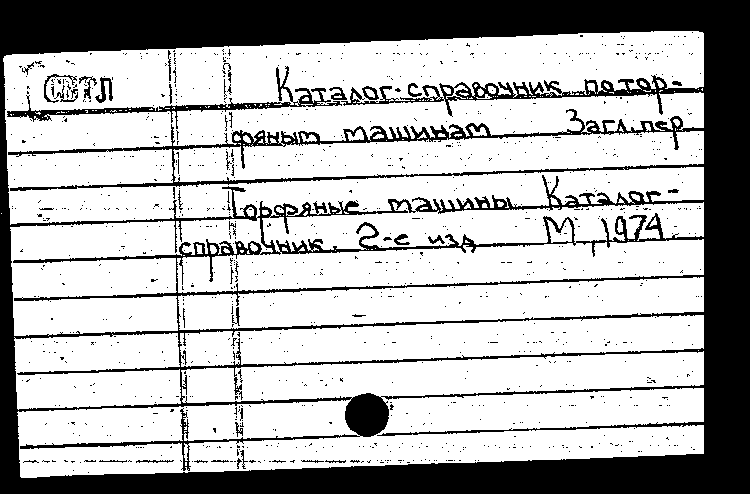 СВТЛ
Каталог-справочник по тор-
фяным машинам Загл. пер
Торфяные машины Каталог-
справочник. 2-е изд М, 1974.